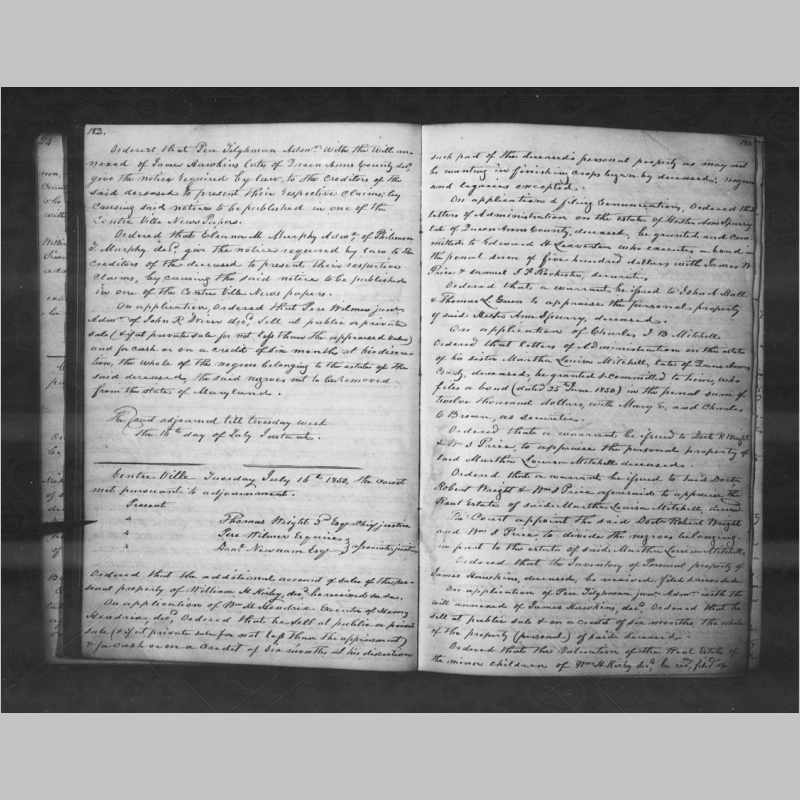 182.
Ordered that Pere Tilghman Admr. with the Will an-
nexed of James Hawkins late of Queen Anns County decd.
give the notice required by law, to the creditors of the
said deceased to present their respective claims; by
causing said notice to be published in one of the
Centre Ville News Papers.
Ordered that Elenora M. Murphy Admx. of Philemon
F. Murphy decd. give the notice required by law to the
creditors of the deceased to present their respective
claims, by causing the said notice to be published
in one of the Centre Ville News papers.
On application, Ordered that Pere Wilmer junr.
Admr. of John R. decd. sell at public or private
sale (& if at private sale for not less than the appraised value)
and for cash or on a credit of six months at his discre-
tion, the whole of the negroes belonging to the estate of the
said deceased, the said negroes not to be removed
from the state of Maryland.
The Court adjourned till Tuesday week
the 16th day of July Instant.
Centre Ville Tuesday July 16th 1850, the court
met pursuant to adjournment.
Present
" Thomas Wright 3d Esqr Chief justice
" Pere Wilmer Esquire
" Danl. Newnam Esqr associate justices
Ordered that the additional account of sales of the per-
sonal property of William H. Kirby, decd. be received
On application of Wm. H. Hendrix Executor of Henry
Hendrix, decd. Ordered that he sell at public or private
sale (& if at private sale for not less than the appraisment)
& for cash or on a credit of six months at his discretion
such part of the deceased's personal property as may not
be wanting in finishing crops begun by deceased; negroes
and legacies excepted.
On application & filing Renunciation, Ordered that
letters of Administration on the estate of Hester Ann Spurry
late of Queen Anns County, deceased, be granted and com-
mitted to Edward H. who executes a bond in
the penal sum of five hundred dollars with James W.
Price & Samuel T. securities.
Ordered that a warrant be issued to John A.
& Thomas L. to appraise the personal property
of said Hester Ann Spurry, deceased.
On application of Charles J. B. Mitchell
Ordered that letters of Administration on the estate
of his sister Martha Louisa Mitchell, late of Queen Anns
County, deceased, be granted & committed to him, who
files a bond (dated 25th June 1850) in the penal sum of
twelve thousand dollars, with Mary E. and Charles
C Brown, as securities.
Ordered that a warrant be issued to Doct. R. Wright
& Wm. S Price, to appraise the personal property of
said Martha Louisa Mitchell deceased.
Ordered that a warrant be issued to said Doctr.
Robert Wright & Wm S Price aforesaid to appraise the
Real Estate of said Martha Louisa Mitchell,
The Court appoint the said Doctr Robert Wright
and Wm. S Price, to divide the negroes belonging
in part to the estate of said Martha Louisa Mitchell.
Ordered that the Inventory of Personal property of
James Hawkins, deceased, be received, filed & recorded
On application of Pere Tilghman junr. Admr. with the
will annexed of James Hawkins, decd. Ordered that he
sell at public sale & on a credit of six months, the whole
of the property (personal) of said deceased.
Ordered that the Valuation of the Real Estate of
the minor children of Wm H. Kirby decd. be recd. filed &c